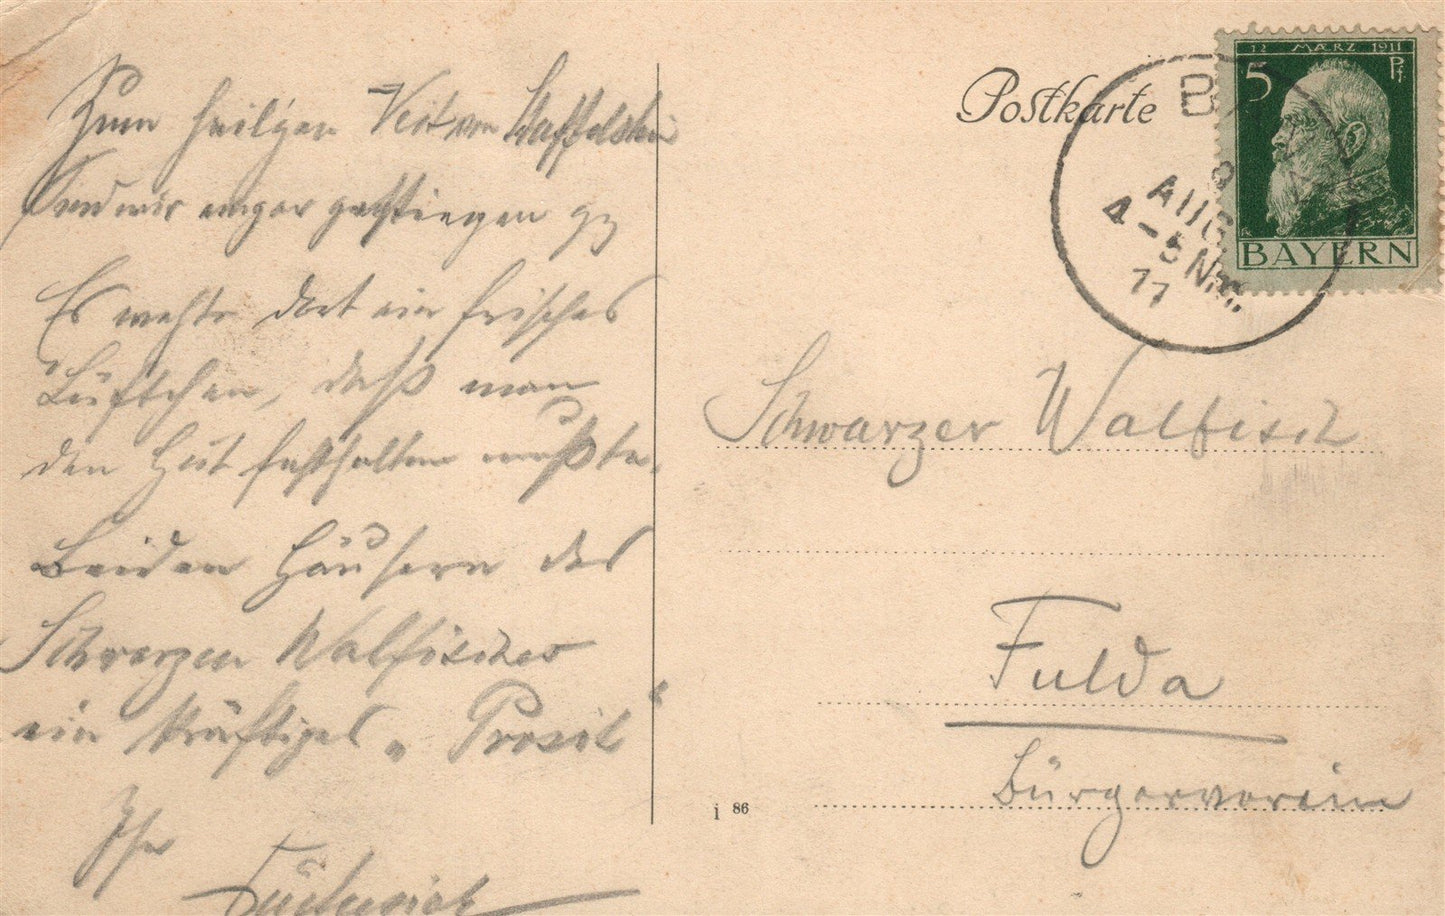 Zum heilgen Veit von Staffelstein
sind wir empor gestiegen
Es wehte dort ein frisches
Lüftchen, daß man
den Hut festhalten mußte.
Beiden Häusern des
Schwarzen Walfisches
ein kräftiges „Prosit“
Ihr
Postkarte
12 MÆRZ 1911
5 Pf
BAYERN
AUG
4-5 Nm.
11
Schwarzer Walfisch
Fulda
Bürgerverein
i 86